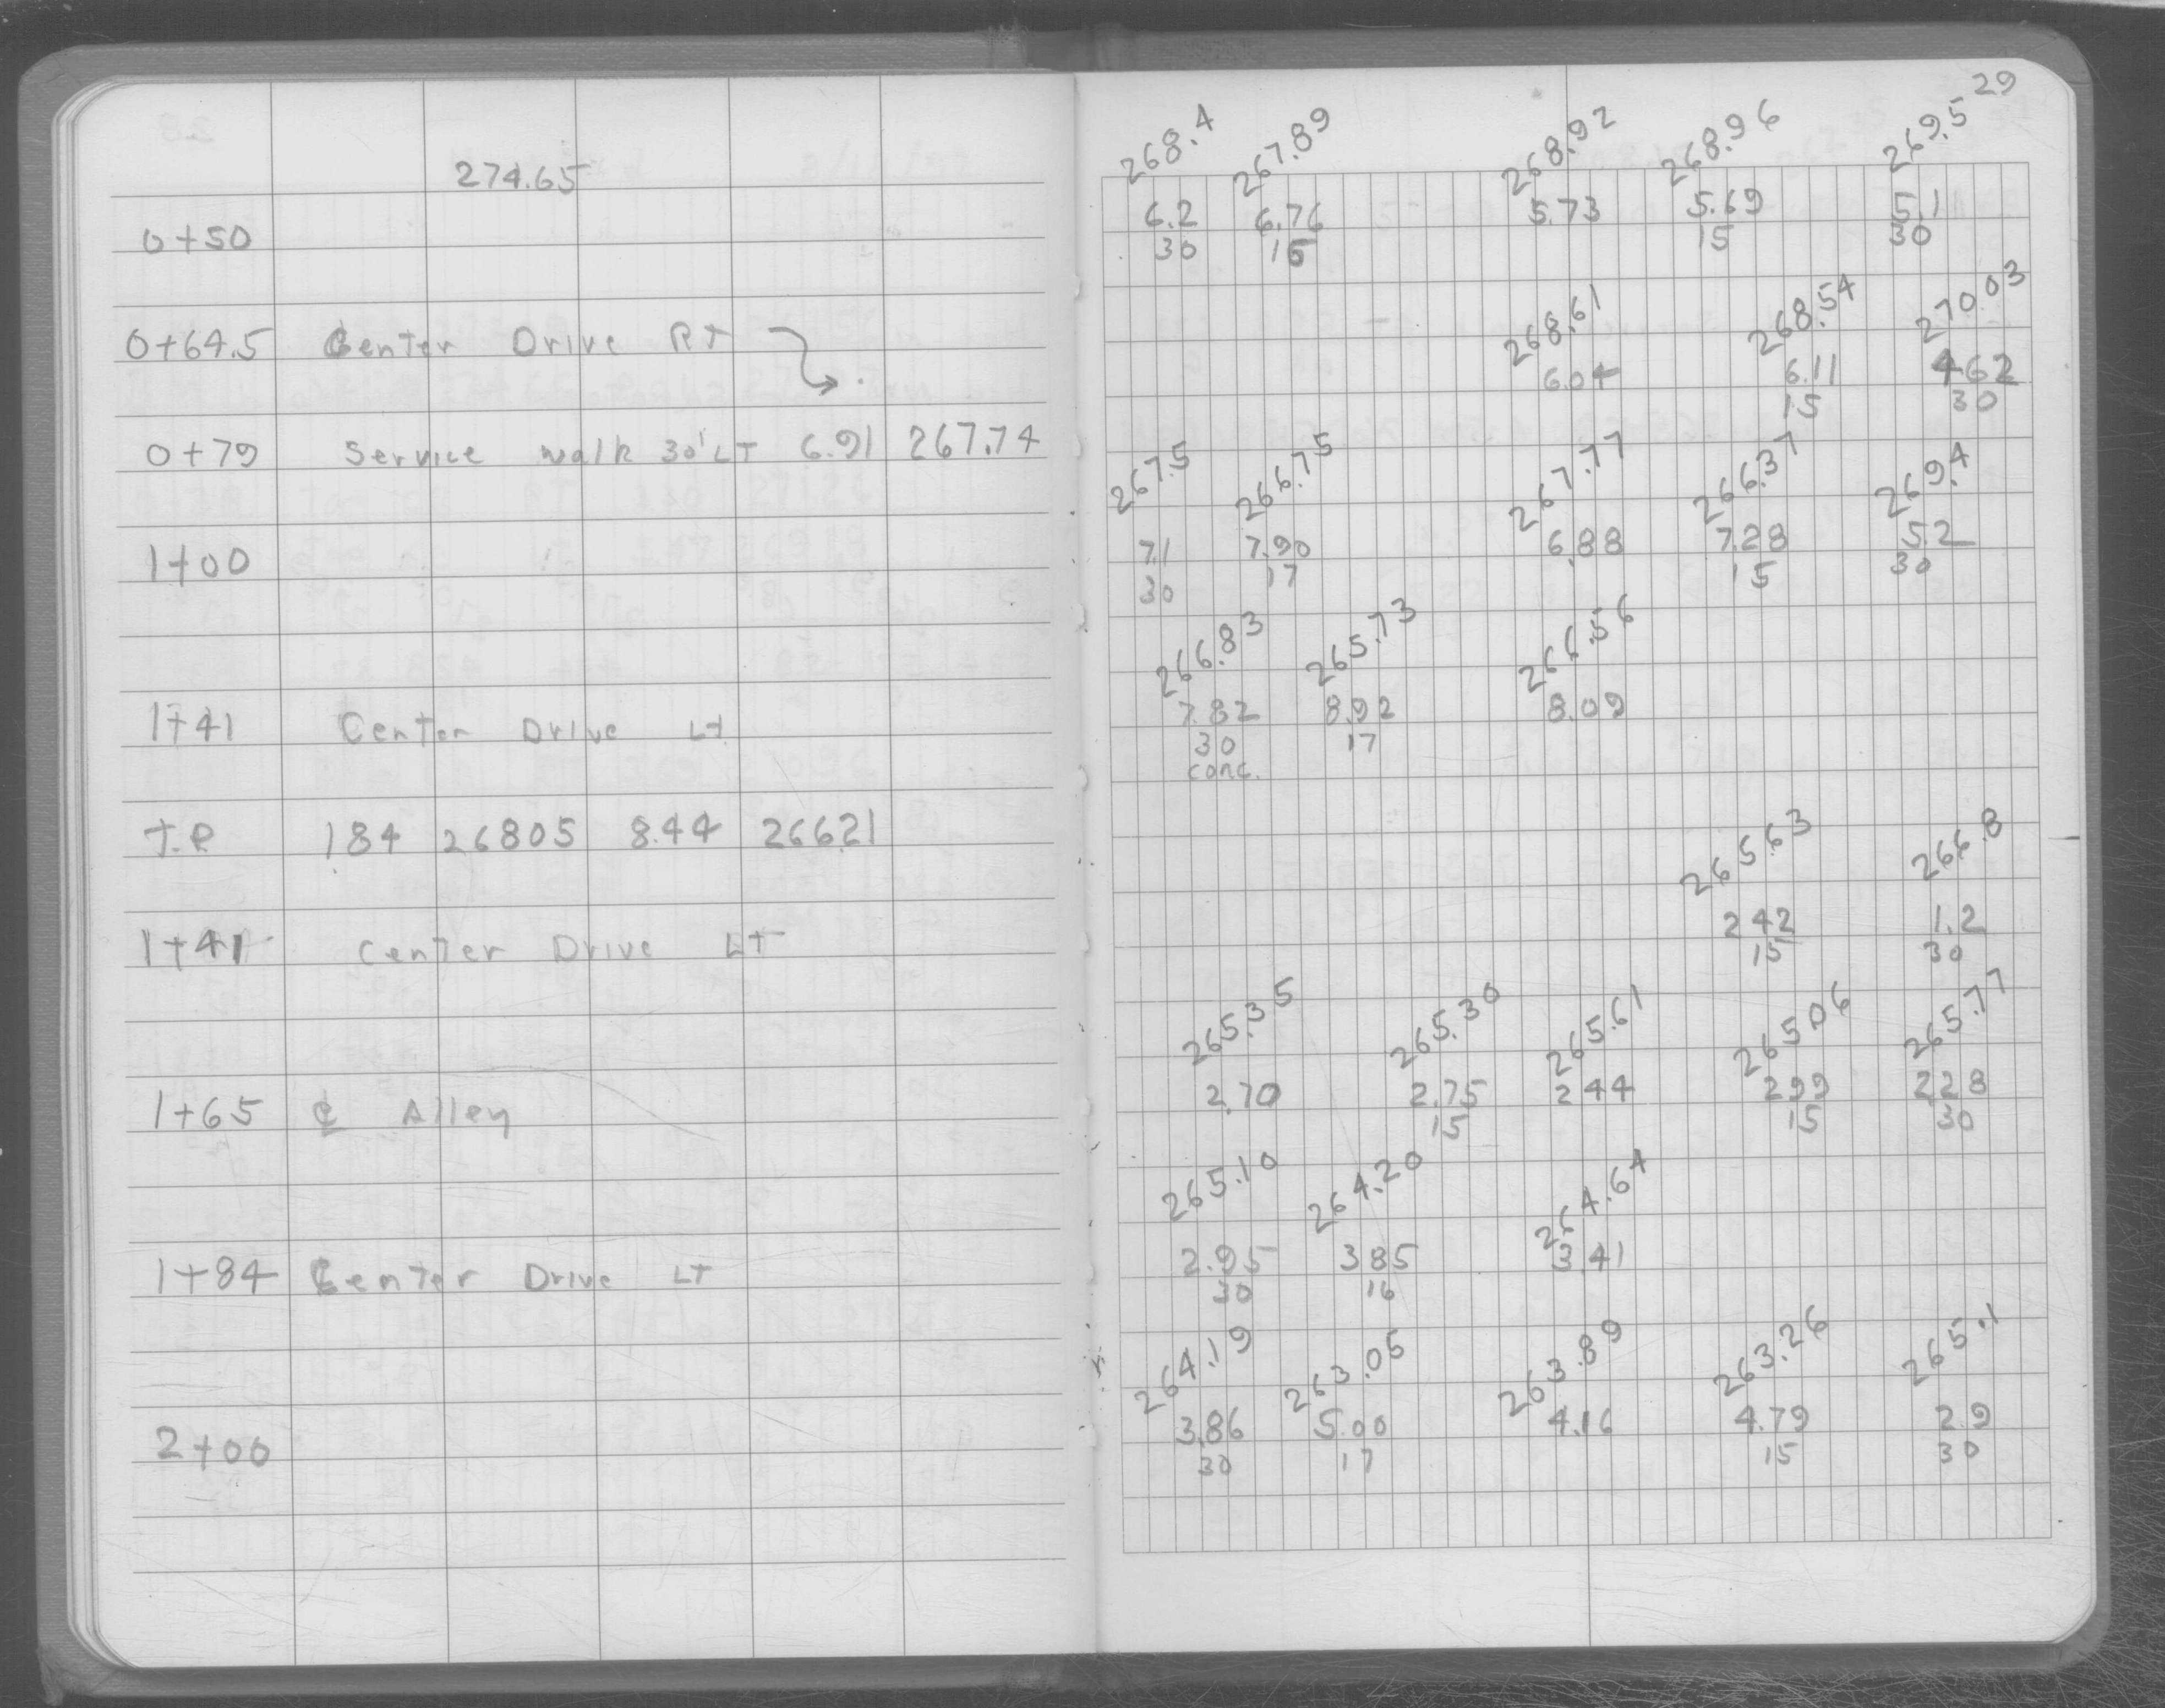 29
274.65
268.4 267.89 268.92 268.96 269.5
0+50 6.2 6.76 5.73 5.69 5.1
30 15 15 30
268.61 268.54 270.03
0+64.5 Center Drive RT 6.04 6.11 4.62
15 30
0+79 Service walk 30' LT 6.91 267.74
267.5 266.75 267.77 266.37 269.4
1+00 7.1 7.90 6.88 7.28 5.2
30 17 15 30
266.83 265.73 266.56
1+41 Center Drive LT 7.82 8.92 8.09
30 17
conc.
T.P. 1.84 268.05 8.44 266.21
265.63 266.8
1+41 Center Drive LT 2.42 1.2
15 30
265.35 265.30 265.61 265.06 265.77
1+65 ℄ Alley 2.70 2.75 2.44 2.99 2.28
15 15 30
265.10 264.20 264.64
1+84 Center Drive LT 2.95 3.85 3.41
30 16
264.19 263.05 263.89 263.26 265.1
2+00 3.86 5.00 4.16 4.79 2.9
30 17 15 30